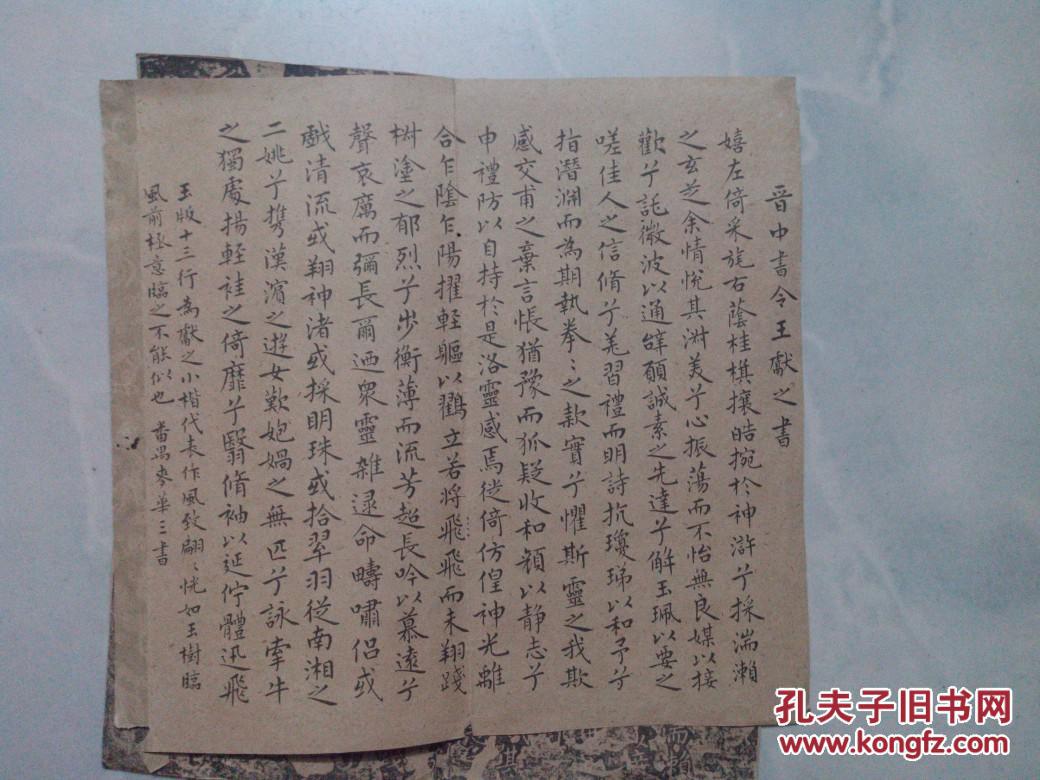 晋中書令王獻之書
嬉左倚采旄右蔭桂棋攘皓捥於神滸兮採湍瀨
之玄芝余情悅其淑美兮心振蕩而不怡無良媒以接
歡兮託微波以通辭願誠素之先達兮解玉珮以要之
嗟佳人之信脩兮羌習禮而明詩抗瓊珶以和予兮
指潛淵而為期執拳〻之款實兮懼斯靈之我欺
感交甫之棄言悵猶豫而狐疑收和顏以静志兮
申禮防以自持於是洛靈感焉徙倚仿偟神光離
合乍陰乍陽擢輕軀以鶴立若將飛飛而未翔踐
椒塗之郁烈兮步衡薄而流芳超長吟以慕遠兮
聲哀厲而彌長爾迺衆靈雜逯命疇嘯侶或
戲清流或翔神渚或採明珠或拾翠羽從南湘之
二姚兮携漢濱之遊女歎匏媧之無匹兮詠牽牛
之獨處揚輕袿之倚靡兮翳脩袖以延佇體迅飛
玉版十三行為獻之小楷代表作風致翩〻恍如玉樹臨
風前極意臨之不能似也 番禺麥華三書
孔夫子旧书网
www.kongfz.com